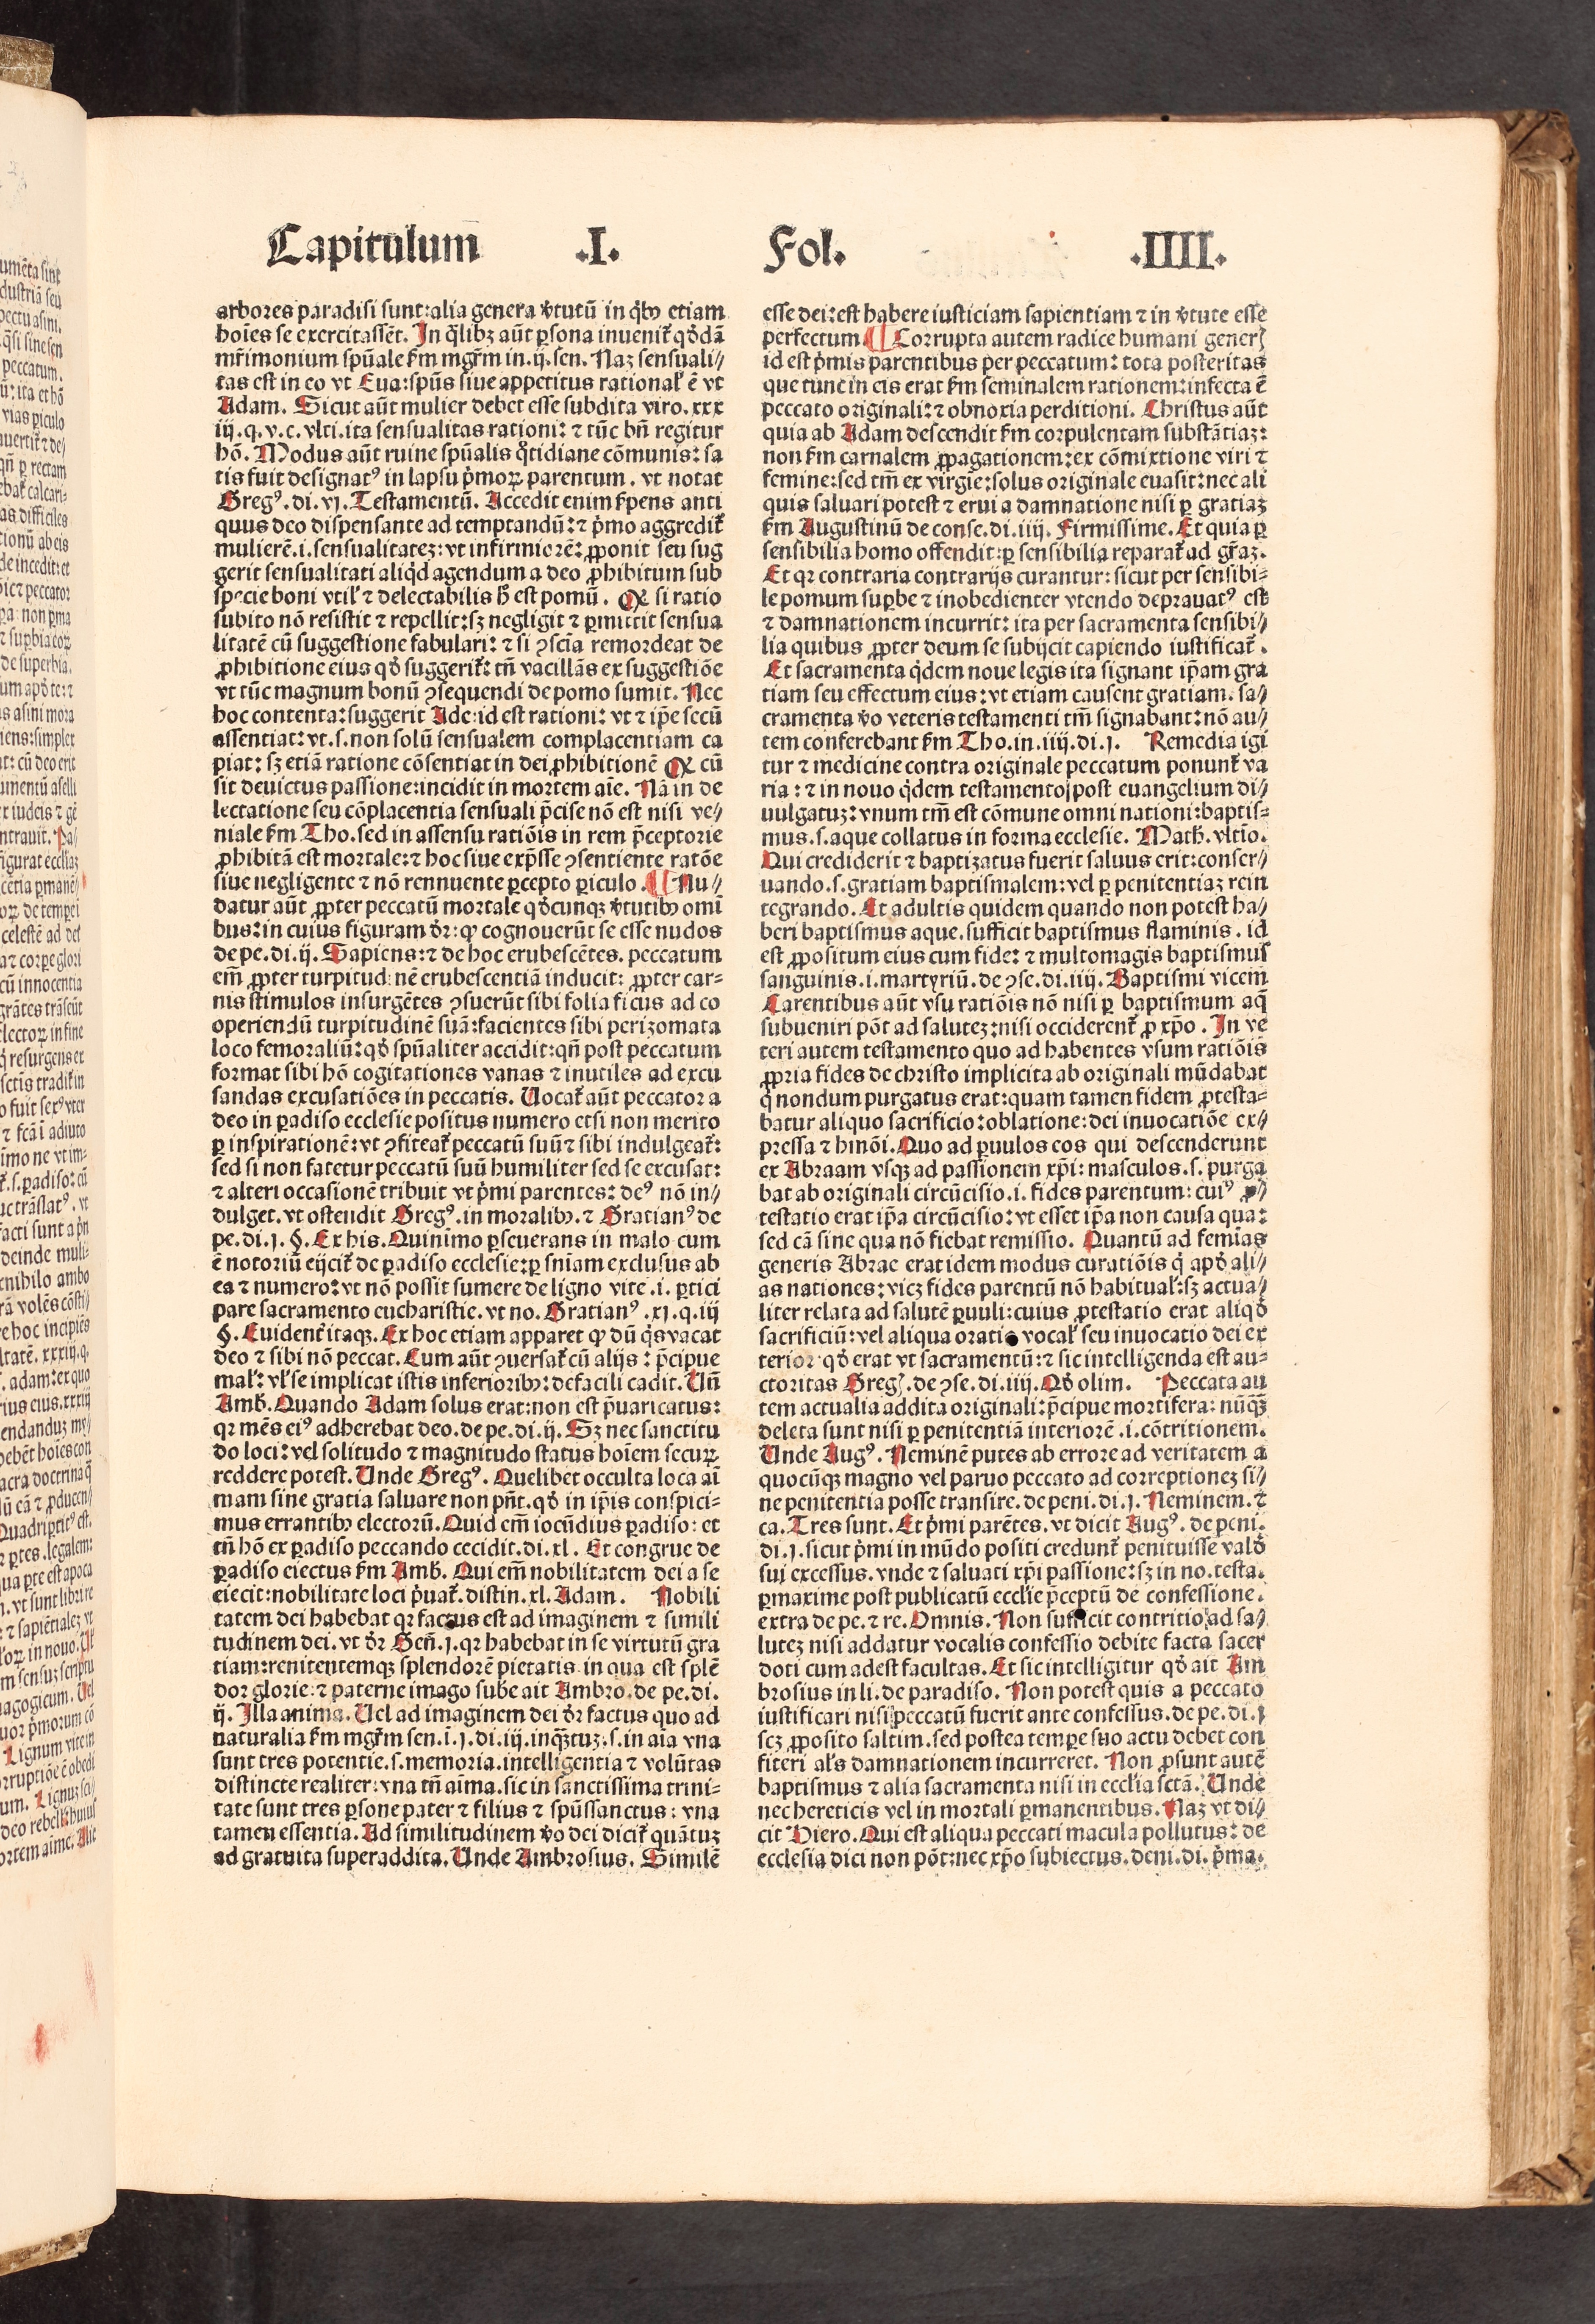 Capitulum .I. Fol. .IIII.
arbores paradisi sunt:alia genera v̾tutū in q̈bꝰ etiam
hoı̄es se exercitassēt. In q̄libꝫ aūt ꝑsona inuenit᷑ qđdā
mr̄imonium spūale ẜm mgr̄m in.ij.sen. Naꝫ sensuali⸗
tas est in eo vt Eua:spūs siue appetitus rational᷑ ē vt
Adam. Sicut aūt mulier debet esse subdita viro.xxx
iij.q.v.c.vlti.ita sensualitas rationi: ⁊ tūc bn̄ regitur
hō. Modus aūt ruine spūalis q̊tidiane cōmunis: sa
tis fuit designatꝰ in lapsu p̾moꝝ parentum. vt notat
Gregꝰ.di.vj.Testamentū. Accedit enim ẜpens anti
quus deo dispensante ad temptandū:⁊ p̾mo aggredit᷑
mulierē.i.sensualitateꝫ:vt infirmiorē: ꝓponit seu sug
gerit sensualitati aliqd̾ agendum a deo ꝓhibitum sub
specie boni vtil᷑ ⁊ delectabilis ħ est pomū. Qꝭ si ratio
subito nō resistit ⁊ repellit:sꝫ negligit ⁊ ꝑmittit sensua
litatē cū suggestione fabulari: ⁊ si ꝯscīa remordeat de
ꝓhibitione eius qđ suggerit᷑: tn̄ vacillās ex suggestiōe
vt tūc magnum bonū ꝯsequendi de pomo sumit. Nec
hoc contenta:suggerit Ade:id est rationi: vt ⁊ ip̄e secū
assentiat:vt.s.non solū sensualem complacentiam ca
piat: sꝫ etiā ratione cōsentiat in dei ꝓhibitionē Qꝭ cū
sit deuictus passione:incidit in mortem aı̄e. Nā in de
lectatione seu cōplacentia sensuali p̄cise nō est nisi ve⸗
niale ẜm Tho.sed in assensu ratiōis in rem p̄ceptorie
ꝓhibitā est mortale:⁊ hoc siue exp̄sse ꝯsentiente ratōe
siue negligente ⁊ nō rennuente ꝑcepto ꝑiculo. ¶ Nu⸗
datur aūt ꝓpter peccatū mortale qđcunqꝫ v̾tutibꝰ omı̄
bus:in cuius figuram dr̄:ꝙ cognouerūt se esse nudos
de pe.di.ij.Sapiens:⁊ de hoc erubescētes. peccatum
em̄ ꝓpter turpitudinē erubescentiā inducit: ꝓpter car⸗
nis stimulos insurgētes ꝯsuerūt sibi folia ficus ad co
operiendū turpitudinē suā:facientes sibi perizomata
loco femoraliū:qđ spūaliter accidit:qn̄ post peccatum
format sibi hō cogitationes vanas ⁊ inutiles ad excu
sandas excusatiōes in peccatis. Uocat᷑ aūt peccator a
deo in ꝑadiso ecclesie positus numero etsi non merito
ꝑ inspirationē:vt ꝯfiteat᷑ peccatū suū ⁊ sibi indulgeat᷑:
sed si non fatetur peccatū suū humiliter sed se excusat:
⁊ alteri occasionē tribuit vt p̾mi parentes: deꝰ nō in⸗
dulget.vt ostendit Gregꝰ.in moralibꝰ.⁊ Gratianꝰ de
pe.di.j.§.Ex his.Quinimo ꝑseuerans in malo cum
ē notoriū eijcit᷑ de ꝑadiso ecclesie:ꝑ sn̄iam exclusus ab
ea ⁊ numero:vt nō possit sumere de ligno vite.i.ꝑtici
pare sacramento eucharistie.vt no.Gratianꝰ.xj.q.iij
§.Euident᷑ itaqꝫ.Ex hoc etiam apparet ꝙ dū q̇s vacat
deo ⁊ sibi nō peccat.Cum aūt ꝯuersat᷑ cū alijs: p̄cipue
mal᷑: vl᷑ se implicat istis inferioribꝰ:defacili cadit.Un̄
Amb̾.Quando Adam solus erat:non est p̄uaricatus:
qꝛ mēs eiꝰ adherebat deo.de pe.di.ij. Sꝫ nec sanctitu
do loci:vel solitudo ⁊ magnitudo status hoı̄em secuꝝ
reddere potest.Unde Gregꝰ. Quelibet occulta loca aı̄
mam sine gratia saluare non pn̄t.qđ in ip̄is conspici⸗
mus errantibꝰ electorū.Quid em̄ iocūdius ꝑadiso: et
tn̄ hō ex ꝑadiso peccando cecidit.di.xl. Et congrue de
ꝑadiso eiectus ẜm Amb̾. Qui em̄ nobilitatem dei a se
eiecit:nobilitate loci p̾uat᷑.distin.xl.Adam. Nobili
tatem dei habebat qꝛ factus est ad imaginem ⁊ simili
tudinem dei.vt dr̄ Gen̄.j.qꝛ habebat in se virtutū gra
tiam:renitentemqꝫ splendorē pietatis in qua est splē
dor glorie:⁊ paterne imago sube ait Ambro.de pe.di.
ij.Illa anima.Uel ad imaginem dei dr̄ factus quo ad
naturalia ẜm mgr̄m sen.i.j.di.iij.inq̄tuꝫ.s.in aı̄a vna
sunt tres potentie.s.memoria.intelligentia ⁊ volūtas
distincte realiter:vna tn̄ aima.sic in sanctissima trini⸗
tate sunt tres ꝑsone pater ⁊ filius ⁊ spūssanctus: vna
tamen essentia.Ad similitudinem v̾o dei dicit᷑ quātuꝫ
ad gratuita superaddita.Unde Ambrosius. Similē
esse dei:est habere iusticiam sapientiam ⁊ in v̾tute esse
perfectum ¶ Corrupta autem radice humani generꝭ
id est p̾mis parentibus per peccatum: tota posteritas
que tunc in eis erat ẜm seminalem rationem:infecta ē
peccato originali:⁊ obnoxia perditioni. Christus aūt
quia ab Adam descendit ẜm corpulentam substātiaꝫ:
non ẜm carnalem ꝓpagationem:ex cōmixtione viri ⁊
femine:sed tm̄ ex virgı̄e:solus originale euasit:nec ali
quis saluari potest ⁊ erui a damnatione nisi ꝑ gratiaꝫ
ẜm Augustinū de conse.di.iiij. Firmissime. Et quia ꝑ
sensibilia homo offendit:ꝑ sensibilia reparat᷑ ad gr̄aꝫ.
Et qꝛ contraria contrarijs curantur: sicut per sensibi⸗
le pomum suꝑbe ⁊ inobedienter vtendo deprauatꝰ est
⁊ damnationem incurrit: ita per sacramenta sensibi⸗
lia quibus ꝓpter deum se subijcit capiendo iustificat᷑.
Et sacramenta q̇dem noue legis ita signant ip̄am gra
tiam seu effectum eius:vt etiam causent gratiam. sa⸗
cramenta v̾o veteris testamenti tm̄ signabant:nō au⸗
tem conferebant ẜm Tho.in.iiij.di.j. Remedia igi
tur ⁊ medicine contra originale peccatum ponunt᷑ va
ria: ⁊ in nouo q̇dem testamento post euangelium di⸗
uulgatuꝫ:vnum tm̄ est cōmune omni nationi:baptis⸗
mus.s.aque collatus in forma ecclesie. Math̾.vltı̄o.
Qui crediderit ⁊ baptizatus fuerit saluus erit:conser⸗
uando.s.gratiam baptismalem:vel ꝑ penitentiaꝫ rein
tegrando. Et adultis quidem quando non potest ha⸗
beri baptismus aque.sufficit baptismus flaminis. id
est ꝓpositum eius cum fide: ⁊ multomagis baptismus
sanguinis.i.martyriū.de ꝯse.di.iiij.Baptismi vicem
Carentibus aūt vsu ratiōis nō nisi ꝑ baptismum aq̄
subueniri pōt ad saluteꝫ:nisi occiderent᷑ ꝓ xp̄o. In ve
teri autem testamento quo ad habentes vsum ratiōis
ꝓpria fides de christo implicita ab originali mūdabat
q̇ nondum purgatus erat:quam tamen fidem ꝓtesta⸗
batur aliquo sacrificio:oblatione:dei inuocatiōe ex⸗
pressa ⁊ hmōi.Quo ad ꝑuulos eos qui descenderunt
ex Abraam vsqꝫ ad passionem xp̄i: masculos.s.purga
bat ab originali circūcisio.i. fides parentum: cuiꝰ ꝓ⸗
testatio erat ip̄a circūcisio:vt esset ip̄a non causa qua:
sed cā sine qua nō fiebat remissio. Quantū ad femı̄as
generis Abrae erat idem modus curatiōis q̇ apđ ali⸗
as nationes:viꝫ fides parentū nō habitual᷑:sꝫ actua⸗
liter relata ad salutē ꝑuuli:cuius ꝓtestatio erat aliqđ
sacrificiū:vel aliqua oratio vocal᷑ seu inuocatio dei ex
terior qđ erat vt sacramentū:⁊ sic intelligenda est au⸗
ctoritas Gregꝭ.de ꝯse.di.iiij.Qđ olim. Peccata au
tem actualia addita originali:p̄cipue mortifera: nūq̄ꝫ
deleta sunt nisi ꝑ penitentiā interiorē.i.cōtritionem.
Unde Augꝰ. Neminē putes ab errore ad veritatem a
quocūqꝫ magno vel paruo peccato ad correptioneꝫ si⸗
ne penitentia posse transire.de peni.di.j.Neminem.⁊
ca.Tres sunt.Et p̾mi parētes.vt dicit Augꝰ.de peni.
di.j.sicut p̾mi in mūdo positi credunt᷑ penituisse valđ
sui excessus.vnde ⁊ saluati xp̄i passione:sꝫ in no.testa.
ꝑmaxime post publicatū eccl̄ie p̄ceptū de confessione.
extra de pe.⁊ re.Omnis. Non sufficit contritio ad sa⸗
luteꝫ nisi addatur vocalis confessio debite facta sacer
doti cum adest facultas.Et sic intelligitur qđ ait Am
brosius in li.de paradiso. Non potest quis a peccato
iustificari nisi peccatū fuerit ante confessus.de pe.di.j
scꝫ ꝓposito saltim.sed postea tempe suo actu debet con
fiteri al̓s damnationem incurreret. Non ꝓsunt autē
baptismus ⁊ alia sacramenta nisi in eccl̄ia sctā. Unde
nec hereticis vel in mortali ꝑmanentibus. Naꝫ vt di⸗
cit Hiero.Qui est aliqua peccati macula pollutus: de
ecclesia dici non pōt:nec xp̄o subiectus.deni.di. p̾ma.